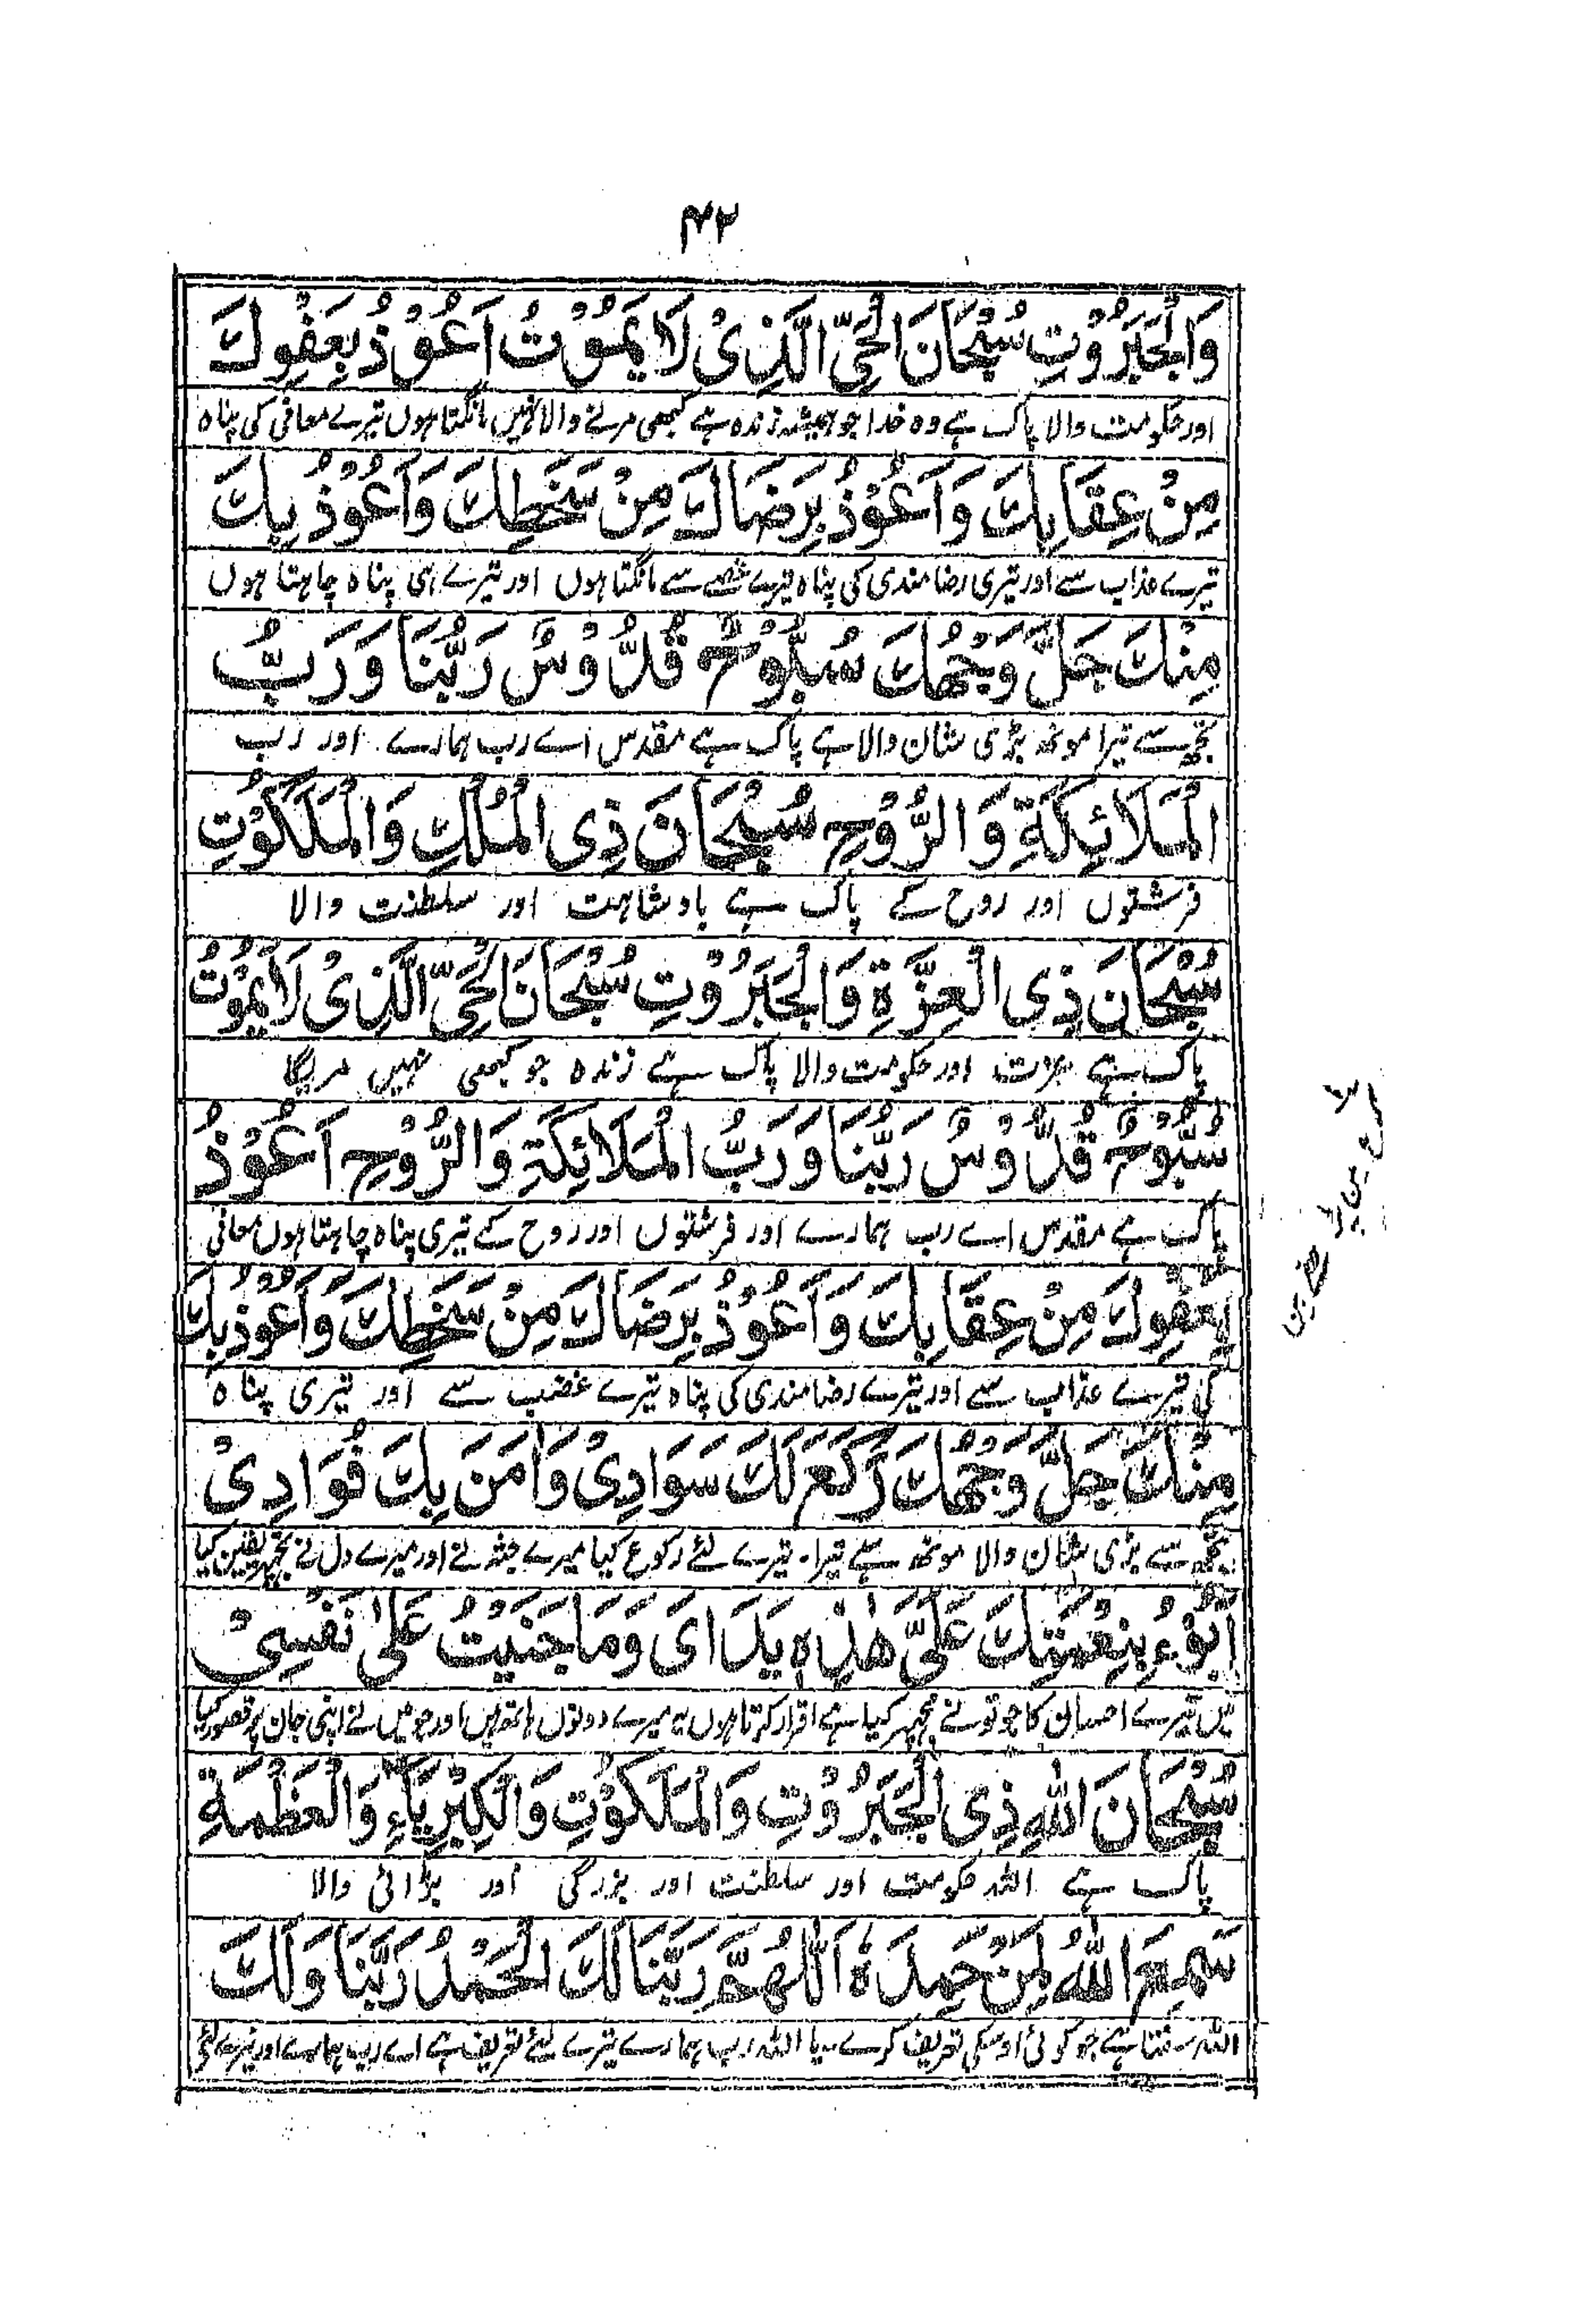 ۴۲
وَالْجَبَرُوْتِ سُبْحَانَ الْحَيِّ الَّذِىْ لَا يَمُوْتُ اَعُوْذُ بِعَفْوِكَ
اور حکومت والا پاک ہے وہ خدا جو ہمیشہ زندہ ہے کبھی مرنے والا نہیں مانگتا ہوں تیرے معافی کی پناہ
مِنْ عِقَابِكَ وَاَعُوْذُ بِرَضَاكَ مِنْ سَخَطِكَ وَاَعُوْذُ بِكَ
تیرے عذاب سے اور تیری رضامندی کی پناہ تیرے غصے سے مانگتا ہوں اور تیرے ہی پناہ چاہتا ہوں
مِنْكَ جَلَّ وَجْهُكَ سُبُّوْحٌ قُدُّوْسٌ رَبُّنَا وَرَبُّ
تجھ سے تیرا مونھ بڑی شان والا ہے پاک ہے مقدس اے رب ہمارے اور رب
الْمَلَائِكَةِ وَالرُّوْحِ سُبْحَانَ ذِى الْمُلْكِ وَالْمَلَكُوْتِ
فرشتوں اور روح کے پاک ہے بادشاہت اور سلطنت والا
سُبْحَانَ ذِى الْعِزَّةِ وَالْجَبَرُوْتِ سُبْحَانَ الْحَيِّ الَّذِىْ لَا يَمُوْتُ
پاک ہے عزت اور حکومت والا پاک ہے زندہ جو کبھی نہیں مریگا
سُبُّوْحٌ قُدُّوْسٌ رَبُّنَا وَرَبُّ الْمَلَائِكَةِ وَالرُّوْحِ اَعُوْذُ
پاک ہے مقدس اے رب ہمارے اور فرشتوں اور روح کے تیری پناہ چاہتا ہوں معافی
بِعَفْوِكَ مِنْ عِقَابِكَ وَاَعُوْذُ بِرَضَاكَ مِنْ سَخَطِكَ وَاَعُوْذُ بِكَ
کی تیرے عذاب سے اور تیرے رضامندی کی پناہ تیرے غضب سے اور تیری پناہ
مِنْكَ جَلَّ وَجْهُكَ رَكَعَ لَكَ سَوَادِىْ وَاٰمَنَ بِكَ فُوَادِىْ
تجھ سے بڑی شان والا مونھ ہے تیرا۔ تیرے لئے رکوع کیا میرے جثہ نے اور میرے دل نے تجھپر یقین کیا
اَبُوْءُ بِنِعْمَتِكَ عَلَىَّ هٰذِهٖ يَدَاىَ وَمَا جَنَيْتُ عَلٰى نَفْسِىْ
میں تیرے احسان کا جو تونے مجھپر کیا ہے اقرار کرتا ہوں یہ میرے دونوں ہاتھ ہیں اور جو میں نے اپنی جان پر قصور کیا
سُبْحَانَ اللّٰهِ ذِى الْجَبَرُوْتِ وَالْمَلَكُوْتِ وَالْكِبْرِيَاءِ وَالْعَظْمَةِ
پاک ہے اللہ حکومت اور سلطنت اور بزرگی اور بڑائی والا
سَمِعَ اللّٰهُ لِمَنْ حَمِدَهٗ اَللّٰهُمَّ رَبَّنَا لَكَ الْحَمْدُ رَبَّنَا وَلَكَ
اللہ سنتا ہے جو کوئی اوسکی تعریف کرے۔ یا اللہ رب ہمارے تیرے لئے تعریف ہے اے رب ہمارے اور تیرے لئے